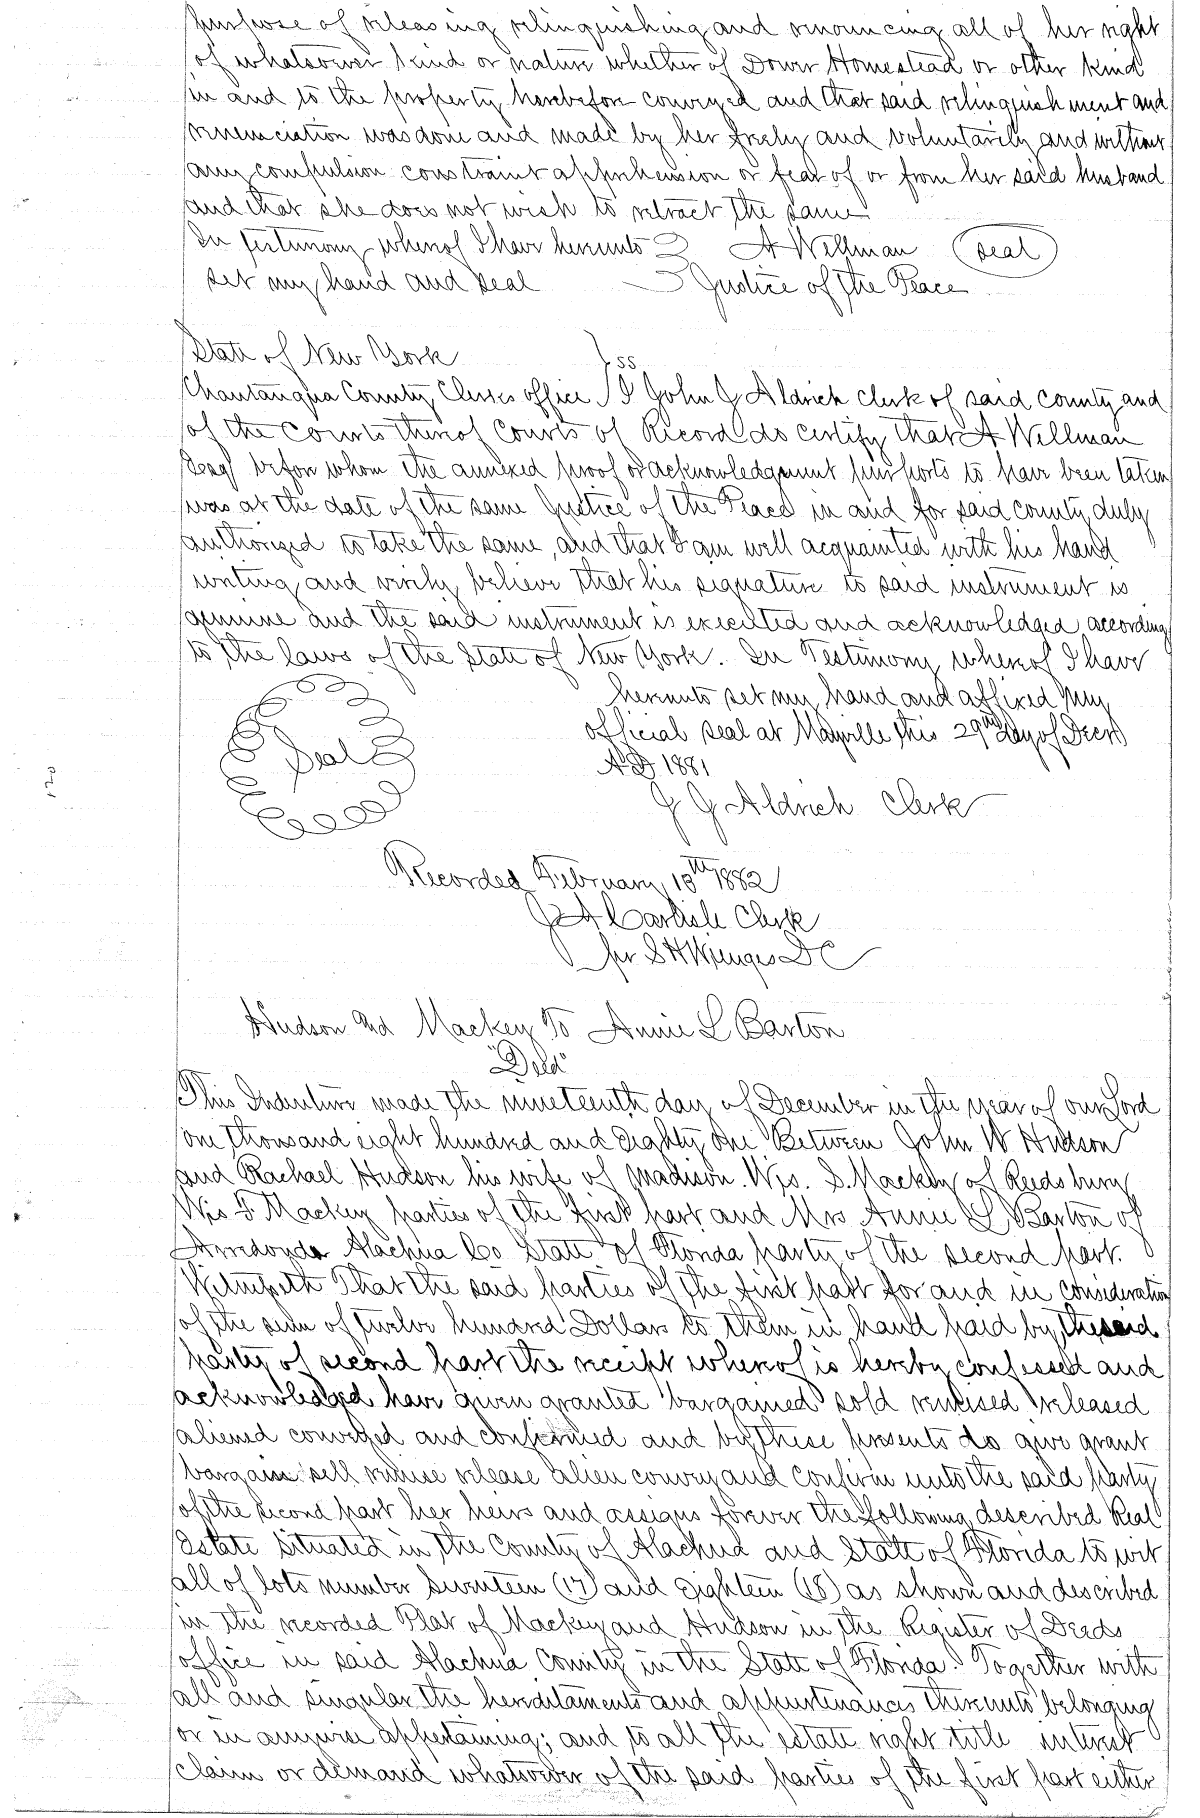 purpose of releasing relinquishing and renouncing all of her right
of whatsoever kind or nature whether of Dower Homestead or other kind
in and to the property herebefore conveyed and that said relinquishment and
renunciation was done and made by her freely and voluntarily and without
any compulsion constraint apprehension or fear of or from her said husband
and that she does not wish to retract the same
In testimony whereof I have hereunto A Wellman seal
set my hand and seal Justice of the Peace
State of New York } ss
Chautauqua County Clerks office I John J Aldrich clerk of said county and
of the Courts thereof Courts of Record do certify that A Wellman
Esq before whom the annexed proof or acknowledgement purports to have been taken
was at the date of the same Justice of the Peace in and for said county duly
authorized to take the same, and that I am well acquainted with his hand
writing and verily believe that his signature to said instrument is
genuine and the said instrument is executed and acknowledged according
to the laws of the State of New York. In Testimony whereof I have
hereunto set my hand and affixed my
official seal at Mayville this 29th day of Decr
Seal
AD 1881
J J Aldrich Clerk
Recorded February 13th 1882
J A Carlisle Clerk
per S H Wienges DC
120
Hudson and Mackey To Annie L Barton
"Deed"
This Indenture made the nineteenth day of December in the year of our Lord
one thousand eight hundred and Eighty one Between John W Hudson
and Rachael Hudson his wife of Madison. Wis. S. Mackey of Reedsburg
Wis F Mackey parties of the first part and Mrs Annie L Barton of
Arredonda Alachua Co State of Florida party of the second part.
Witnesseth That the said parties of the first part for and in consideration
of the sum of twelve hundred Dollars to them in hand paid by the said
party of second part the receipt whereof is hereby confessed and
acknowledged have given granted bargained sold remised released
aliened conveyed and confirmed and by these presents do give grant
bargain sell remise release alien convey and confirm unto the said party
of the second part her heirs and assigns forever the following described Real
Estate Situated in the County of Alachua and State of Florida to wit
all of lots number Seventeen (17) and Eighteen (18) as shown and described
in the recorded Plat of Mackey and Hudson in the Register of Deeds
office in said Alachua County in the State of Florida. Together with
all and singular the hereditaments and appurtenances thereunto belonging
or in anywise appertaining; and to all the estate right title interest
claim or demand whatsoever of the said parties of the first part either